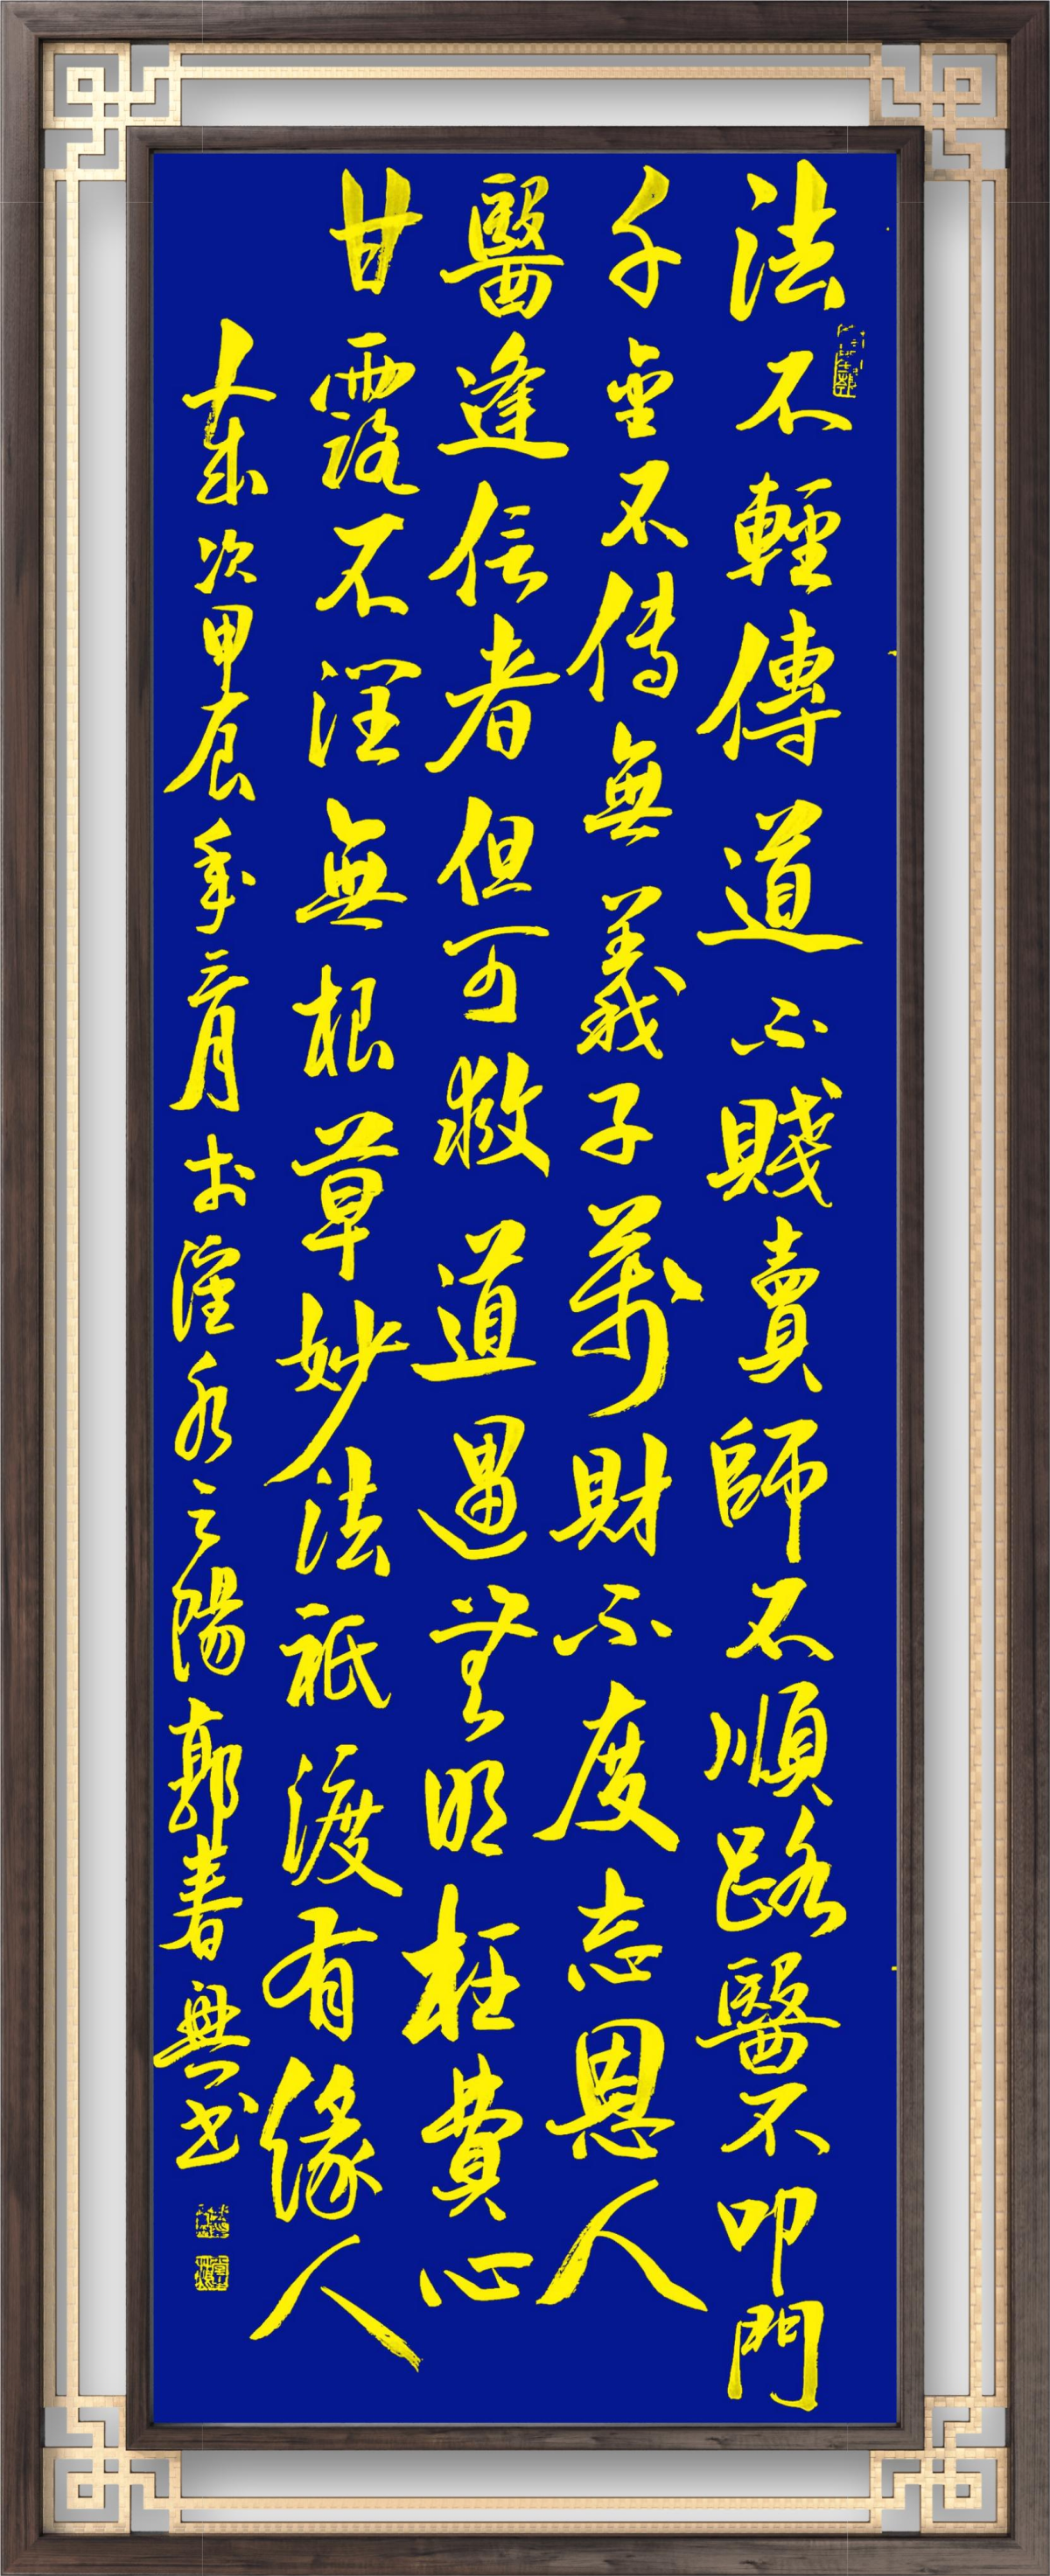 法不輕傳道不賤賣師不順路醫不叩門
千金不傳無義子萬財不度忘恩人
醫逢信者但可救道遇無明枉費心
甘露不潤無根草妙法祇渡有緣人
歲次甲辰年二月於淮水之陽郭春興书